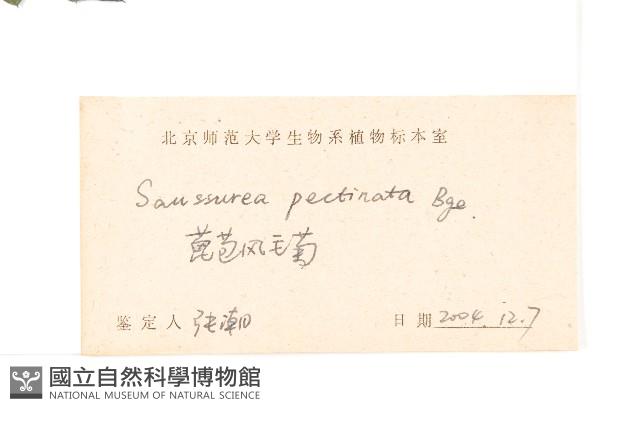 北京师范大学生物系植物标本室
Saussurea pectinata Bge.
蓖苞风毛菊
鉴定人 张潮
日期 2004.12.7
國立自然科學博物館
NATIONAL MUSEUM OF NATURAL SCIENCE